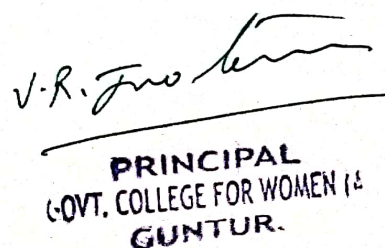 V.R.
PRINCIPAL
GOVT. COLLEGE FOR WOMEN (A
GUNTUR.